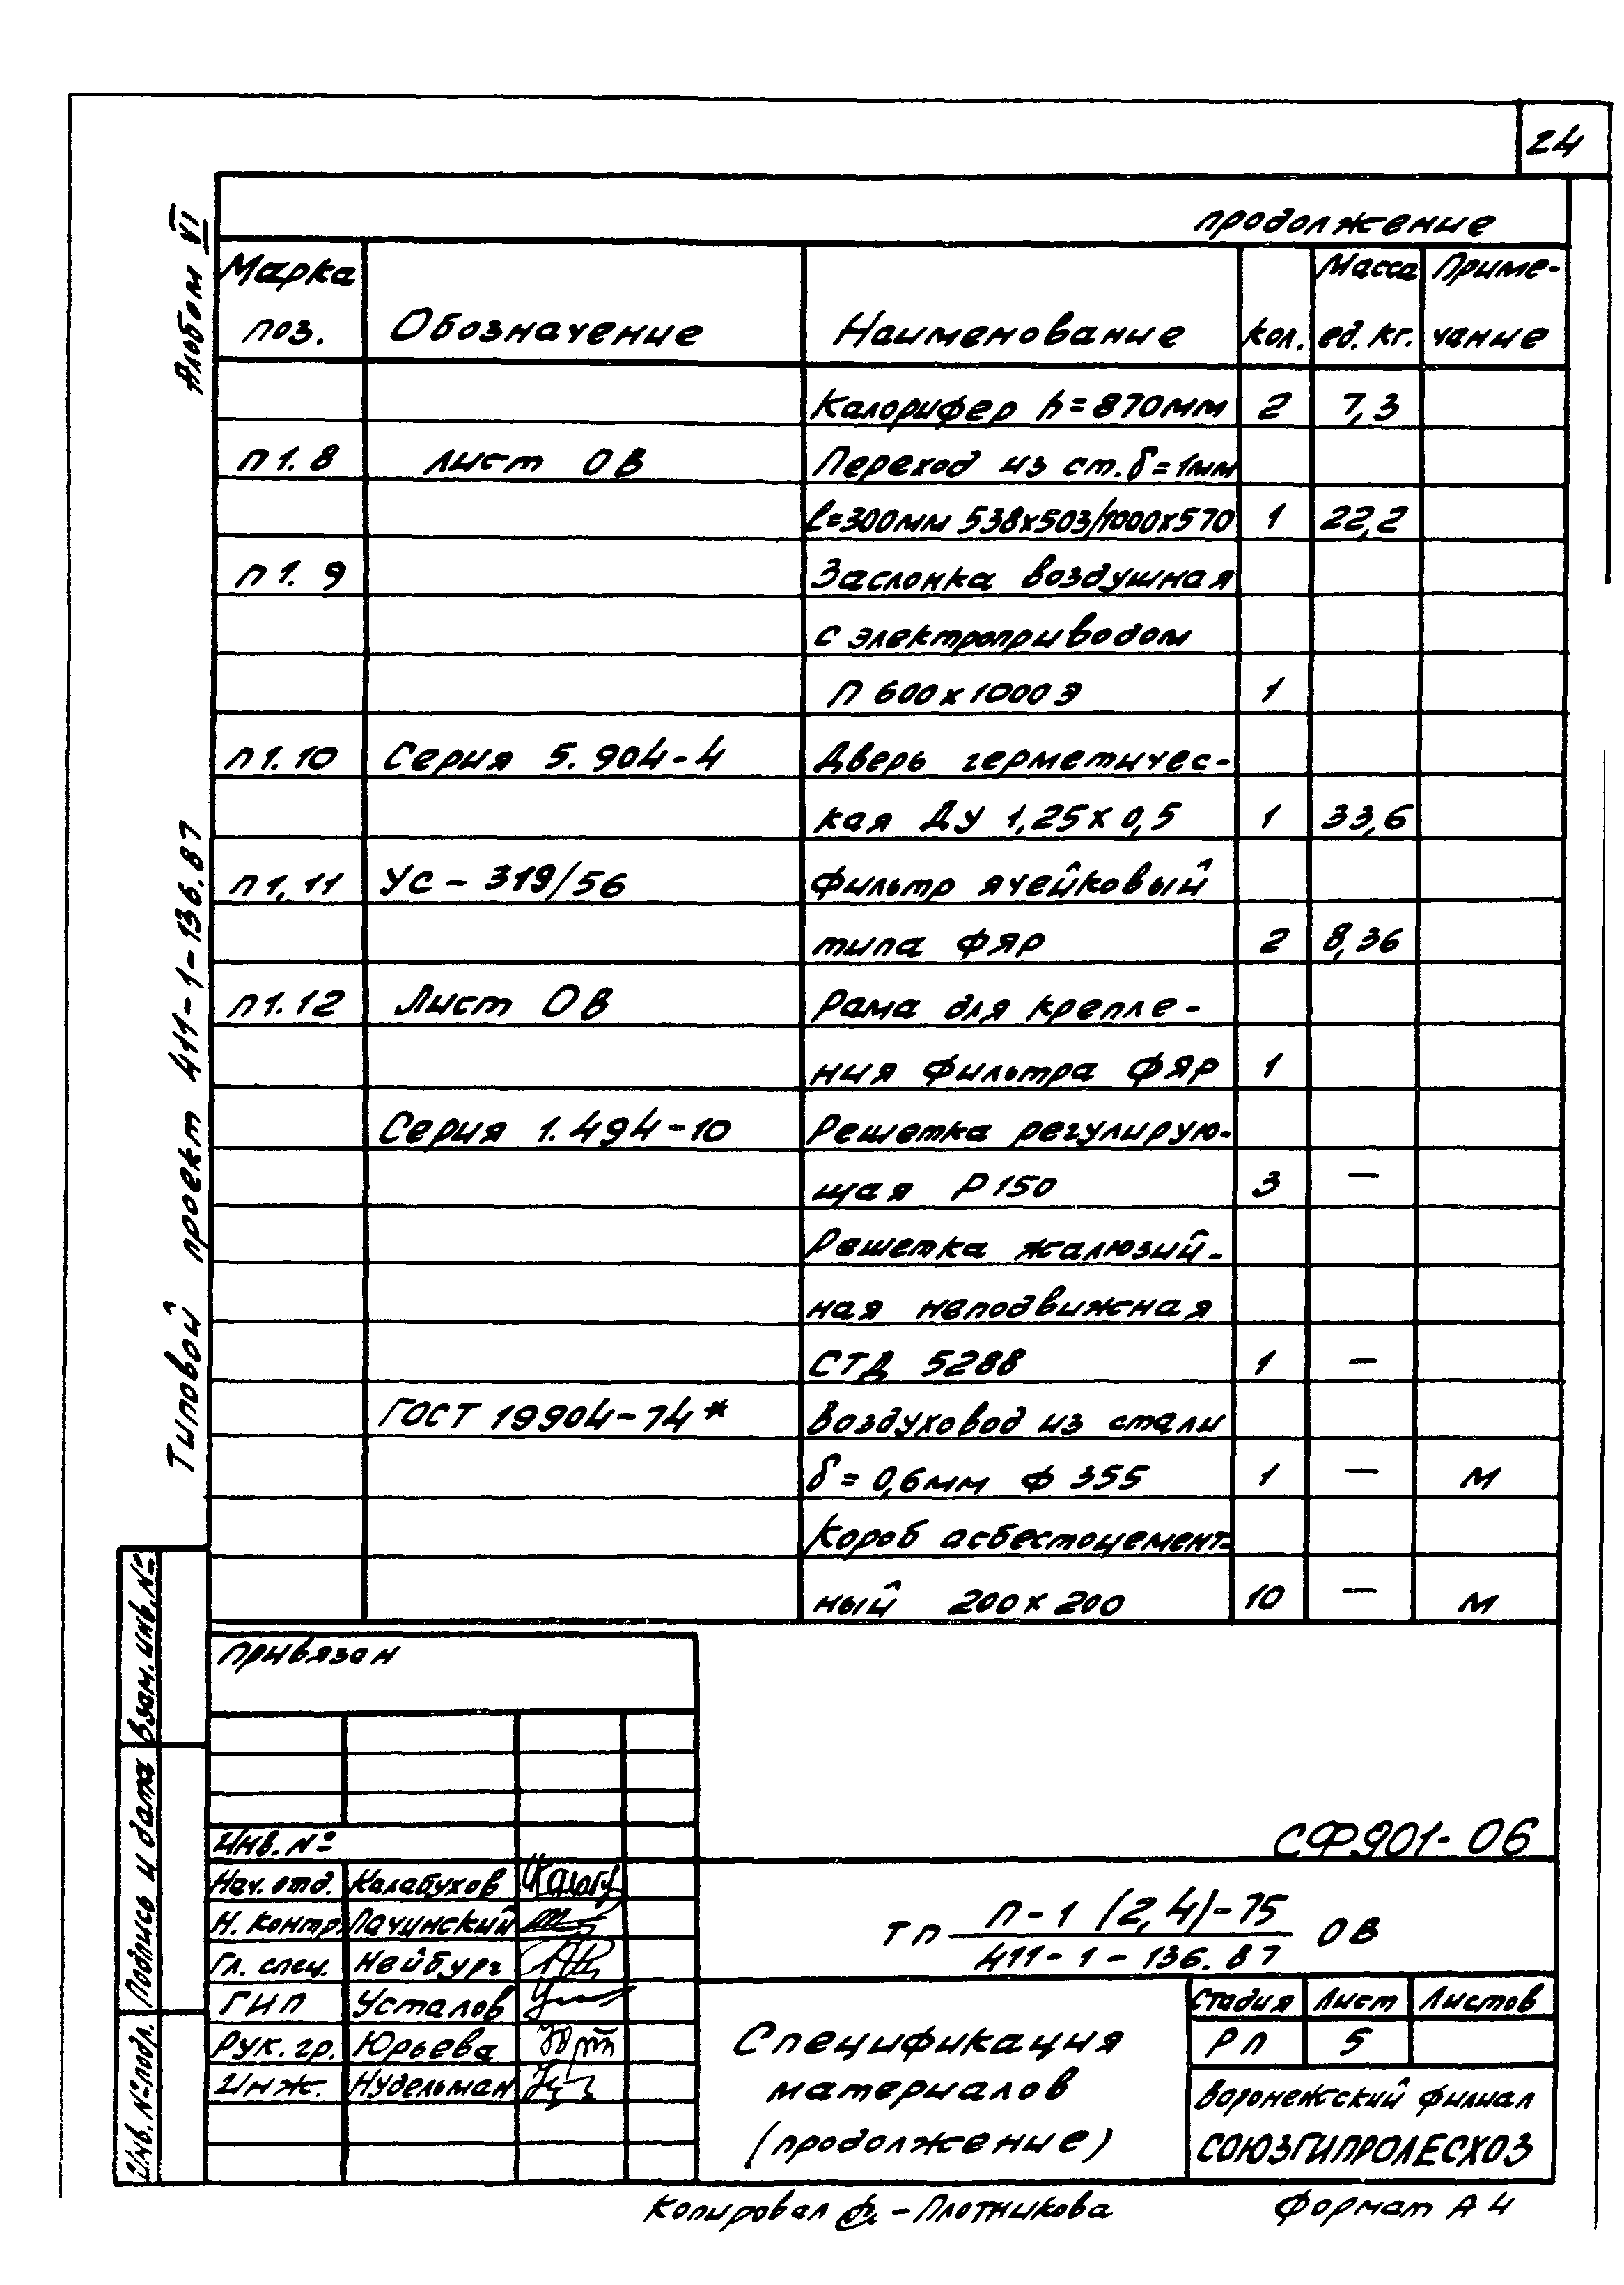 24
Альбом VI
Типовой проект 411-1-136.87
продолжение
Марка поз. Обозначение Наименование кол. Масса ед. кг. Приме-чание
Калорифер h=870мм 2 7,3
п1.8 лист ОВ Переход из ст. δ=1мм
ℓ=300мм 538х503/1000х570 1 22,2
п1.9 Заслонка воздушная
с электроприводом
П 600х1000Э 1
п1.10 Серия 5.904-4 Дверь герметичес-
кая ДУ 1,25х0,5 1 33,6
п1,11 УС-319/56 Фильтр ячейковый
типа ФЯР 2 8,36
п1.12 Лист ОВ Рама для крепле-
ния фильтра ФЯР 1
Серия 1.494-10 Решетка регулирую-
щая Р150 3 —
Решетка жалюзий-
ная неподвижная
СТД 5288 1 —
ГОСТ 19904-74* Воздуховод из стали
δ=0,6мм ф 355 1 — м
Короб асбестоцемент-
ный 200х200 10 — м
Взам. инв. №
Подпись и дата
Инв. № подл.
привязан
Инв. №
Нач. отд. Калабухов
Н. контр. Пачинский
Гл. спец. Нейбург
ГИП Усталов
Рук. гр. Юрьева
Инж. Нудельман
СФ901-06
ТП П-1 (2,4)-75 ОВ
411-1-136.87
Спецификация
материалов
(продолжение)
Стадия Лист Листов
РП 5
Воронежский филиал
СОЮЗГИПРОЛЕСХОЗ
Копировал - Плотникова Формат А4